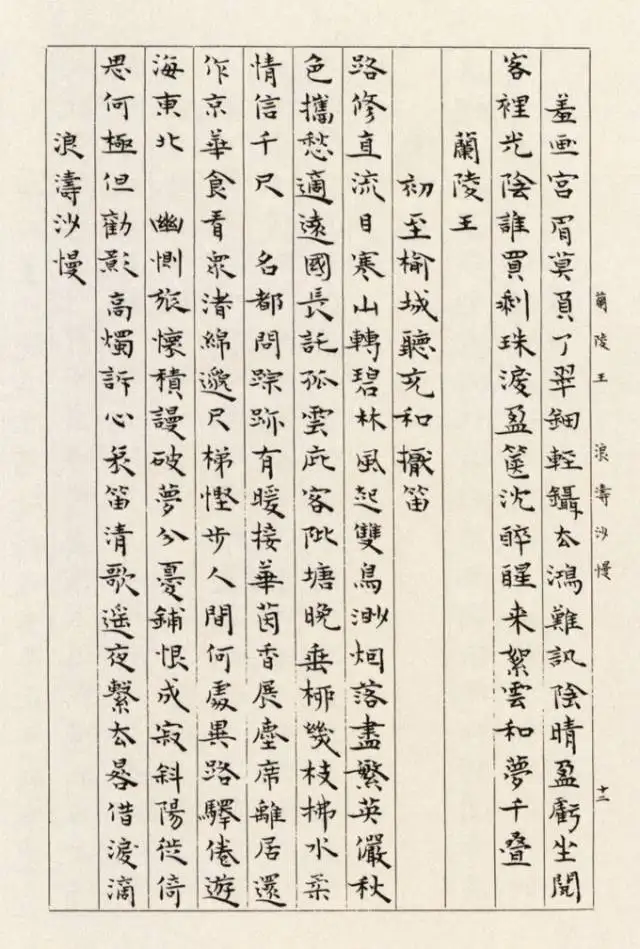 蘭陵王 浪濤沙慢 十二
羞画宮眉莫負了翠鈿輕鑷去鴻難訊陰晴盈虧坐閱
客裡光陰誰買剩珠淚盈箧沈醉醒来絮雲和夢千叠
蘭陵王
初至榆城聽充和擫笛
路修直流目寒山轉碧林風起雙鳥渺烟落盡繁英儼秋
色攜愁適遠國長託孤雲庇客阰塘晚垂柳幾枝拂水柔
情信千尺 名都問踪跡有暖接華茵香展塵席離居還
作京華食看衆渚綿邈尺梯慳步人間何處異路驛倦遊
海東北 幽惻旅懷積謾破夢分憂鋪恨成寂斜陽徙倚
思何極但勸影高燭訴心哀笛清歌遥夜繫去晷借淚滴
浪濤沙慢